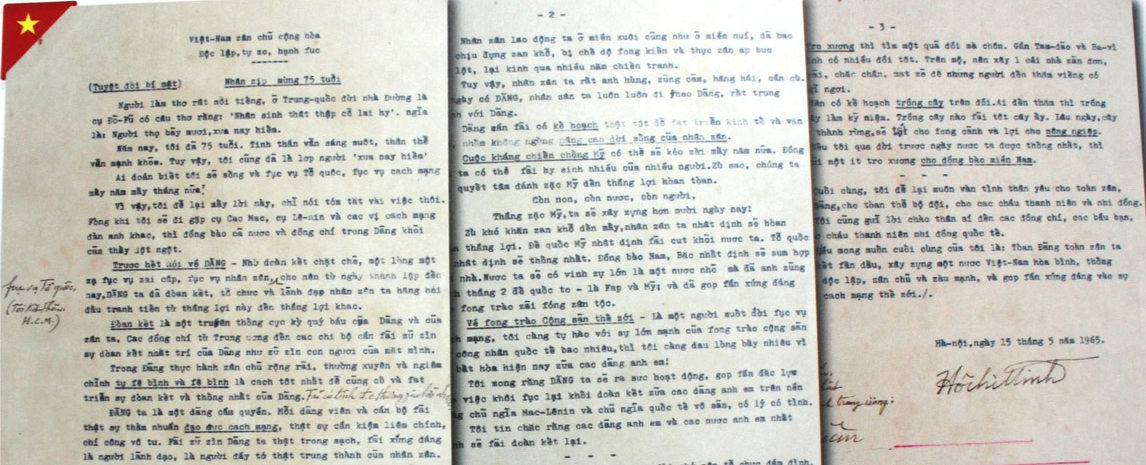 Việt-Nam zân chủ cộng hòa
Độc lập, tự zo, hạnh fuc
(Tuyệt đối bí mật) Nhân zịp mừng 75 tuổi
Người làm thơ rất nổi tiếng, ở Trung-quốc đời nhà Đường là
cụ Đỗ-Fủ có câu thơ rằng: 'Nhân sinh thất thập cổ lai hy'. ngĩa
là: Người thọ bảy mươi, xưa nay hiếm.
Năm nay, tôi đã 75 tuổi. Tinh thần vẫn sáng suốt, thân thể
vẫn mạnh khỏe. Tuy vậy, tôi cũng đã là lớp người 'xưa nay hiếm'
Ai đoán biết tôi sẽ sống và fục vụ Tổ quốc, fục vụ cách mạng
mấy năm mấy tháng nữa!
Vì vậy, tôi để lại mấy lời này, chỉ nói tóm tắt vài việc thôi.
Fòng khi tôi sẽ đi gặp cụ Cac Mac, cụ Lê-nin và các vị cách mạng
đàn anh khac, thì đồng bào cả nước và đồng chí trong Đảng khỏi
cảm thấy đột ngột.
Trươc hết nói về ĐẢNG - Nhờ đoàn kết chặt chẽ, một lòng một
zạ fục vụ zai cấp, fục vụ nhân zân, cho nên từ ngày thành lập đến
nay, ĐẢNG ta đã đoàn kết, tổ chưc và lãnh đạo nhân zân ta hăng hái
đấu tranh tiến từ thắng lợi này đến thắng lợi khac.
fục vụ Tổ quốc,
H.C.M.)
Đoàn kết là một truyền thống cực kỳ quý báu của Đảng và của
zân ta. Các đồng chí từ Trung ương đến các chi bộ cần fải zữ zìn
sự đoàn kết nhất trí của Đảng như zữ zìn con ngươi của mắt mình.
Trong Đảng thực hành zân chủ rộng rãi, thường xuyên và ngiêm
chỉnh tự fê bình và fê bình là cách tốt nhất để củng cố và fat
triển sự đoàn kết và thống nhất của Đảng.
ĐẢNG ta là một đảng cầm quyền. Mỗi đảng viên và cán bộ fải
thật sự thấm nhuần đạo đưc cach mạng, thật sự cần kiệm liêm chính,
chí công vô tư. Fải zữ zìn Đảng ta thật trong sạch, fải xứng đáng
là người lãnh đạo, là người đầy tớ thật trung thành của nhân zân.
- 2 -
Nhân zân lao động ta ở miền xuôi cũng như ở miền nuí, đã bao
chịu đựng zan khổ, bị chế độ fong kiến và thực zân ap bưc
lột, lại kinh qua nhiều năm chiến tranh.
Tuy vậy, nhân zân ta rất anh hùng, zũng cảm, hăng hái, cần cù.
ngày có ĐẢNG, nhân zân ta luôn luôn đi theo Đảng, rất trung
nh với Đảng.
Đảng zân fải có kế hoạch thật tốt để fat triển kinh tế và văn
nhằm không ngừng nâng cao đời sống của nhân zân.
Cuộc kháng chiến chống Mỹ có thể sẽ kéo zài mấy năm nữa. Đồng
ta có thể fải hy sinh nhiều của nhiều người. Zù sao, chúng ta
quyết tâm đánh zặc Mỹ đến thắng lợi hòan tòan.
Còn non, còn nước, còn người,
Thắng zặc Mỹ, ta sẽ xây zựng hơn mười ngày nay!
Zù khó khăn zan khổ đến mấy, nhân zân ta nhất định sẽ hòan
n thắng lợi. Đế quốc Mỹ nhất định fải cut khỏi nước ta. Tổ quốc
nhất định sẽ thống nhất. Đồng bào Nam, Bắc nhất định sẽ sum họp
nhà. Nước ta sẽ có vinh zự lớn là một nước nhỏ mà đã anh zũng
h thắng 2 đế quốc to - là Fap và Mỹ; và đã gop fần xứng đáng
fong trào zải fóng zân tộc.
Về fong trào Cộng sản thế zới - Là một người suốt đời fục vụ
ch mạng, tôi càng tự hào với sự lớn mạnh của fong trào cộng sản
công nhân quốc tế bao nhiêu, thì tôi càng đau lòng bấy nhiêu vì
bất hòa hiện nay zữa các đảng anh em!
Tôi mong rằng ĐẢNG ta sẽ ra sưc hoạt động, gop fần đắc lực
việc khôi fục lại khối đoàn kết zữa các đảng anh em trên nền
g chủ ngĩa Mac-Lênin và chủ ngĩa quốc tế vô sản, có lý có tình.
Tôi tin chắc rằng các đảng anh em và các nước anh em nhất
nh sẽ fải đoàn kết lại.
- 3 -
tro xương thì tìm một quả đồi mà chôn. Gần Tam-đảo và Ba-vì
có nhiều đồi tốt. Trên mộ, nên xây 1 cái nhà zản đơn,
ãi, chắc chắn, mat zẻ để những người đến thăm viếng có
ỉ ngơi.
ên có kế hoạch trồng cây trên đồi. Ai đến thăm thì trồng
y làm kỷ niệm. Trồng cây nào fải tốt cây ấy. Lâu ngày, cây
thành rừng, sẽ tốt cho fong cảnh và lợi cho nông ngiệp.
ếu tôi qua đời trước ngày nước ta được thống nhất, thì
i một ít tro xương cho đồng bào miền Nam.
- - -
Cuối cùng, tôi để lại muôn vàn tình thân yêu cho toàn zân,
Đảng, cho toàn thể bộ đội, cho các cháu thanh niên và nhi đồng.
Tôi cũng gửi lời chào thân aí đến các đồng chí, các bầu bạn,
c cháu thanh niên nhi đồng quốc tế.
iều mong muốn cuối cùng của tôi là: Toàn Đảng toàn zân ta
kết fấn đấu, xây zựng một nước Việt-Nam hòa bình, thống
độc lập, zân chủ và zàu mạnh, và gop fần xứng đáng vào sự
cách mạng thế zới./.
Hà-nội, ngày 15 tháng 5 năm 1965.
Hồ Chí Minh
trung ương: